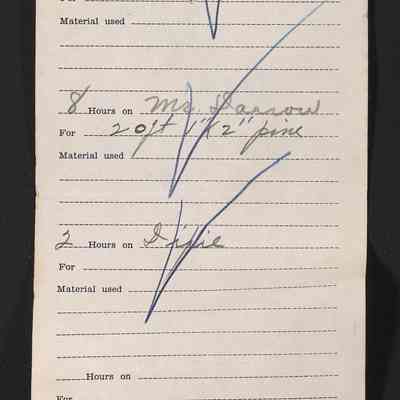 Material used
8 Hours on Mr. Darrow
For 20ft 1"x2" pine
Material used
2 Hours on Dixie
For
Material used
Hours on
For